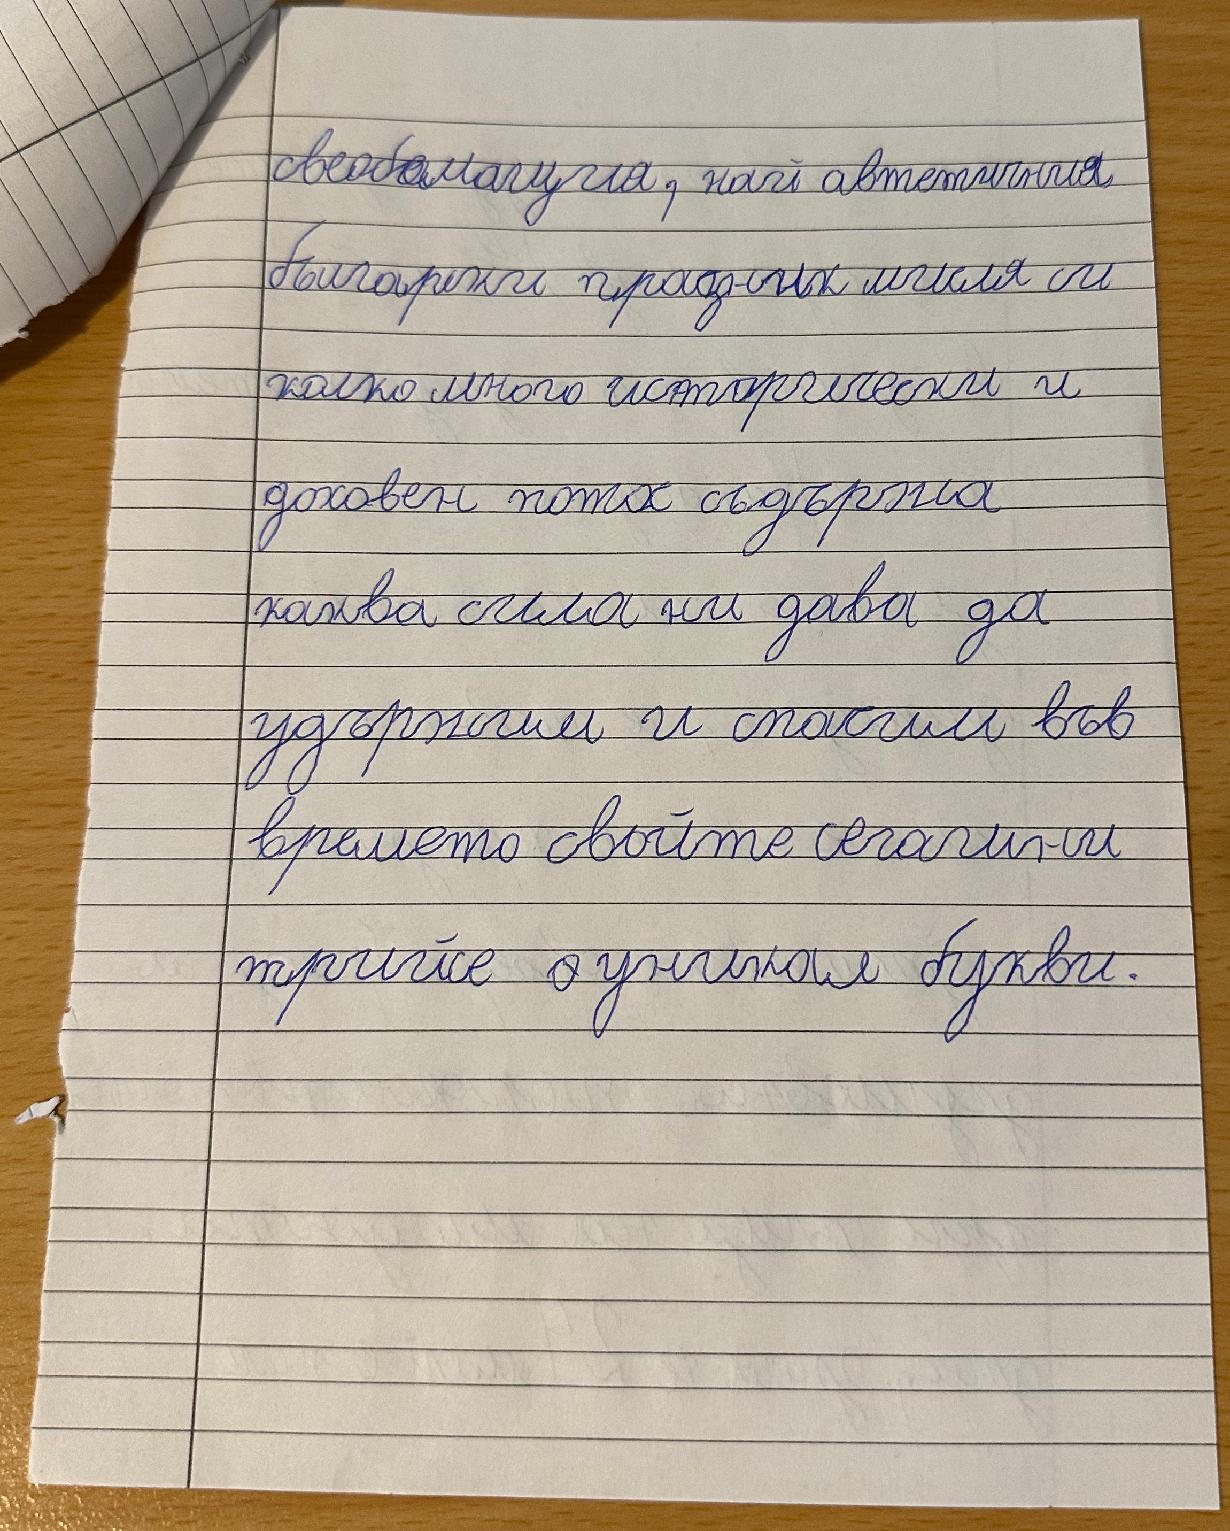 свеобемащия, най автетичния
български празник мисля си
колко много исторически и
доховен поток съдържа
каква сила ни дава да
удържим и спасим във
времето свойте сегашни
трийсе и уникал букви.